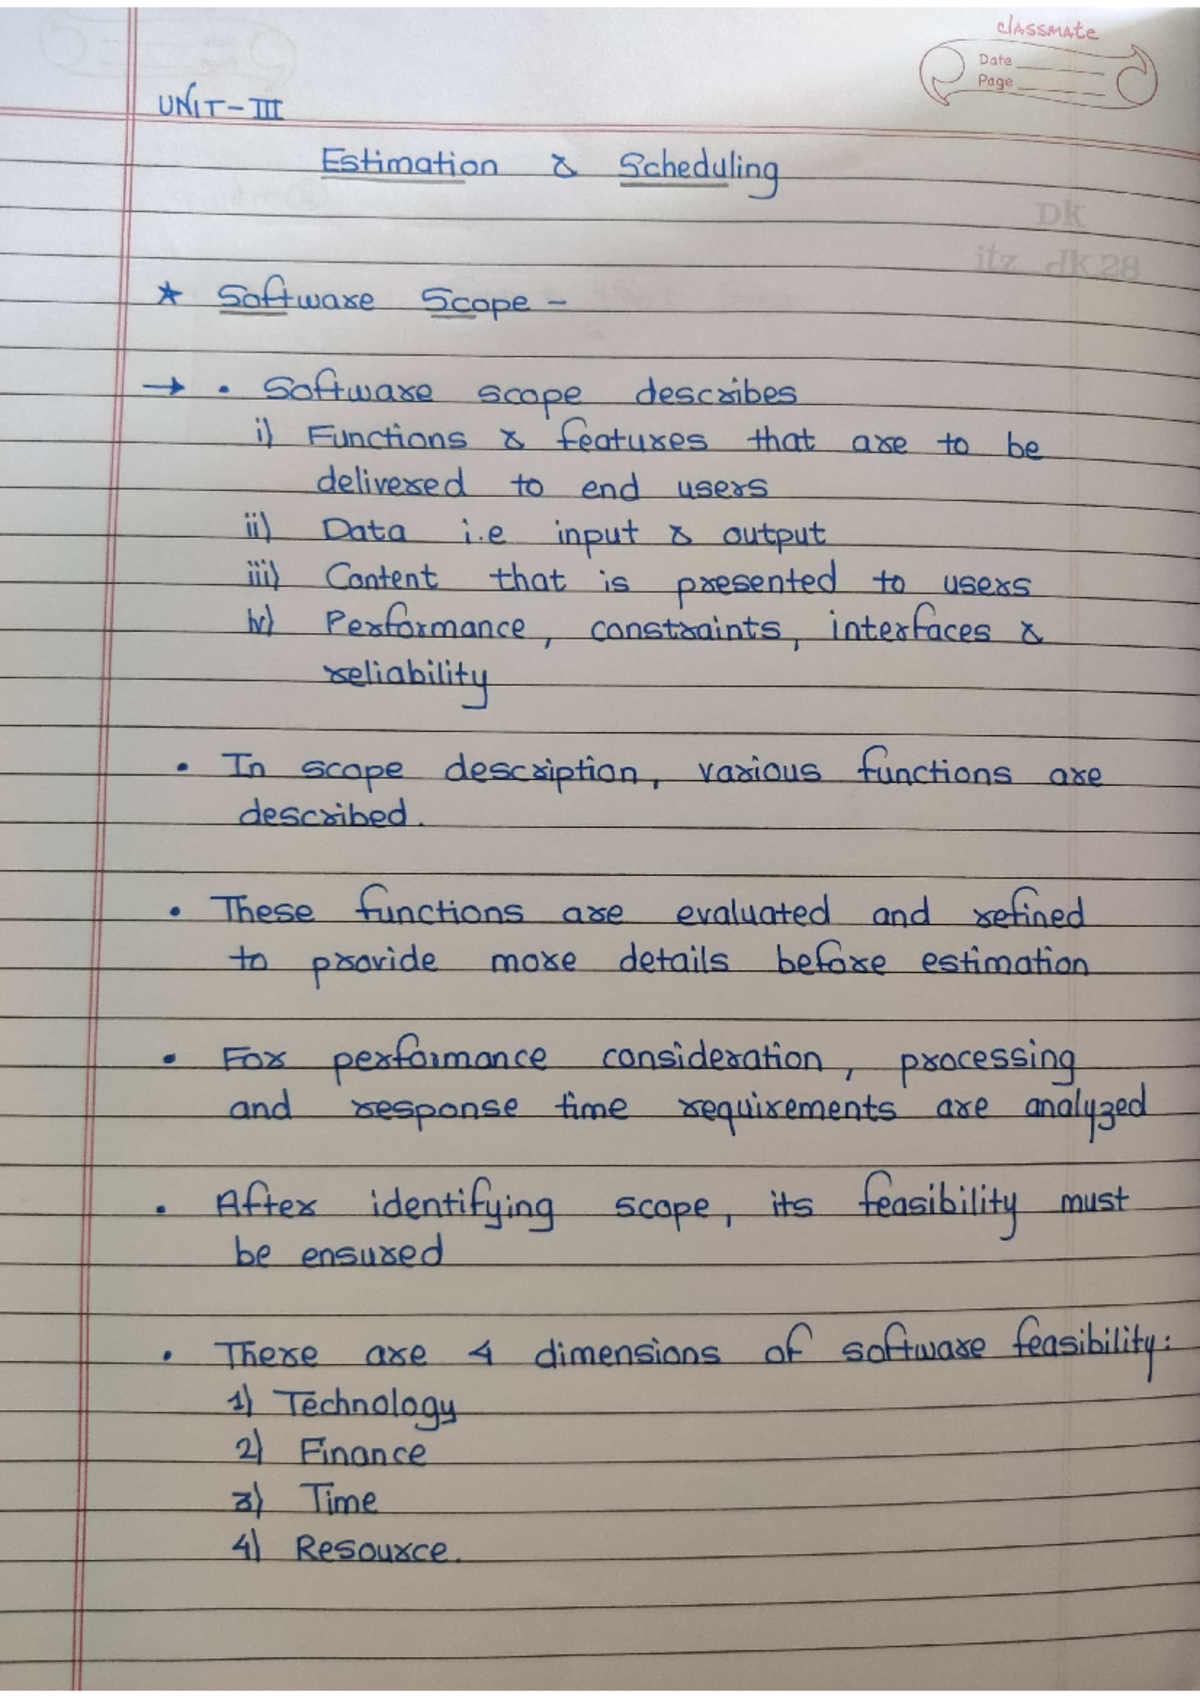 classmate
Date
Page
UNIT-III
Estimation & Scheduling
Dk
itz_dk_28
★ Software Scope -
→ • Software scope describes
i) Functions & features that are to be
delivered to end users
ii) Data i.e input & output
iii) Content that is presented to users
iv) Performance, constraints, interfaces &
reliability
• In scope description, various functions are
described.
• These functions are evaluated and refined
to provide more details before estimation
• For performance consideration, processing
and response time requirements are analyzed
• After identifying scope, its feasibility must
be ensured
• There are 4 dimensions of software feasibility:
1) Technology
2) Finance
3) Time
4) Resource.